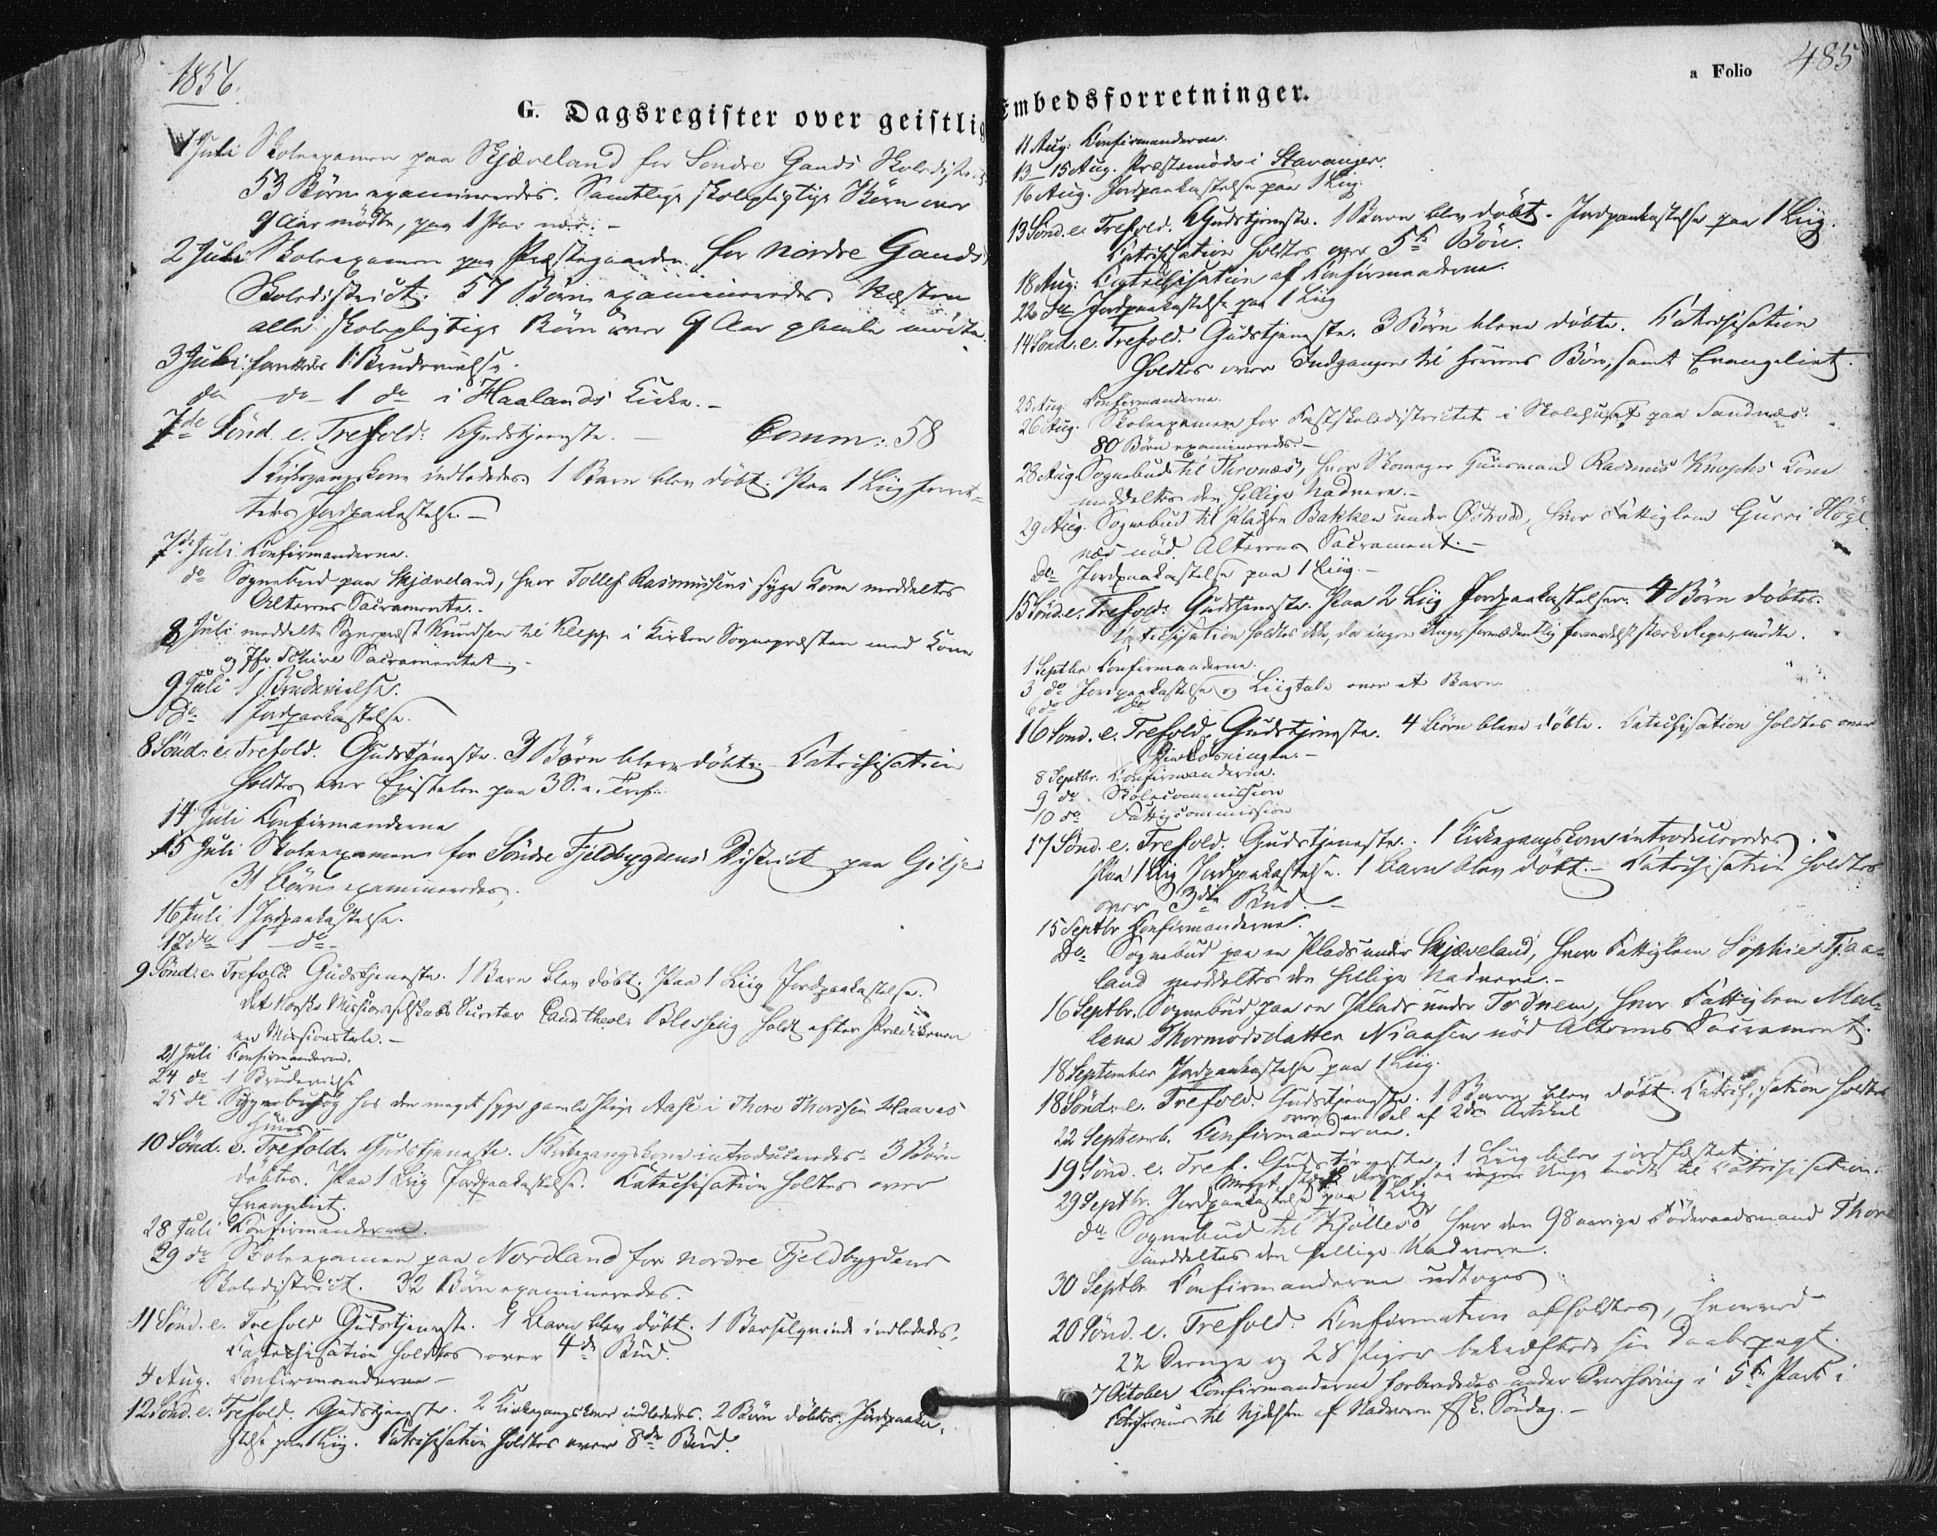 1856.
G. Dagsregister over geistlig
1 Juli Skoleexamen paa Skjæveland for Søndre Gands Skoledistr.
53 Børn examineredes. Samtlige skolepligtige Børn over
9 Aar mødte, paa 1 Par nær. -
2 Juli Skoleexamen paa Præstegaarden for nordre Gands
Skoledistrict. 57 Børn examineredes. Næsten
alle skolepligtige Børn over 9 Aar gamle mødte.
3 Juli forrettedes 1 Brudevielse.
do do 1 do i Haalands Kirke. -
7de Sönd. e. Trefold. Gudstjeneste. - Comm: 58
1 Kirkegangskone indlededes. 1 Barn blev döbt. Paa 1 Liig forret-
tedes Jordpaakastelse. -
7de Juli Confirmanderne.
do Sognebud paa Skjæveland, hvor Tollef Rasmussens syge Kone meddeltes
Alterens Sacramente. -
8 Juli meddelte Sognepræst Knudsen til Klepp i Kirken Sognepræsten med Kone
og Jfr. Schive Sacramentet. -
9 Juli 1 Brudevielse.
do 1 Jordpaakastelse.
8 Sönd. e. Trefold. Gudstjeneste. 3 Børn bleve döbte. - Katechisation
holdtes over Epistelen paa 3 S. e. Tref.
14 Juli Confirmanderne
15 Juli Skoleexamen for Søndre Fjeldbygdens District paa Gilje
31 Børn examineredes.
16 Juli 1 Jordpaakastelse.
17 do 1 - do -
9 Sönd. e. Trefold Gudstjeneste. 1 Barn blev döbt. Paa 1 Liig Jordpaakastelse.
Det Norske Missionsselskabs Secretær Cand. theol. Blessing holdt efter Prædikenen
en Missionstale. -
21 Juli Confirmanderne.
24 do 1 Brudevielse
25 do Sygebesøg hos den meget syge gamle Pige Aase i Thore Thorsen Haaves
Huus. -
10 Sönd. e. Trefold. Gudstjeneste. Kirkegangskone introduceredes. 3 Børn
døbtes. Paa 1 Liig Jordpaakastelse. Katechisation holdtes over
Evangeliet.
28 Juli Confirmanderne.
29 do Skoleexamen paa Nordland for nordre Fjeldbygdens
Skoledistrict. 32 Børn examineredes.
11 Sönd. e. Trefold Gudstjeneste. 1 Barn blev døbt. 1 Barselqvinde indlededes.
Katechisation holdtes over 4de Bud.
4 Aug. Confirmanderne -
12 Sönd. e. Trefold. Gudstjeneste. 2 Kirkegangskoner indlededes. 2 Børn døbtes. Jordpaaka-
stelse paa 1 Liig. Katechisation holdtes over 8de Bud.
a Folio 485
Embedsforretninger.
11 Aug. Confirmanderne.
13-15 Aug. Præstemöde i Stavanger.
16 Aug. Jordpaakastelse paa 1 Liig.
13 Sönd. e. Trefold. Gudstjeneste. 1 Barn blev döbt. Jordpaakastelse paa 1 Liig.
Katechisation holdtes over 5te Bön.
18 Aug. Katechisation af Confirmanderne.
22 do Jordpaakastelse paa 1 Liig
14 Sönd. e. Trefold. Gudstjeneste. 3 Børn bleve döbte. Katechisation
holdtes over Indgangen til Herrens Bön, samt Evangeliet.
25 Aug. Confirmanderne.
26 Aug. Skoleexamen for Fastskoledistrictet i Skolehuset paa Sandnæs.
80 Børn examineredes. -
28 Aug. Sognebud til Thronæs, hvor Skomager Huusmand Rasmus Knophs Kone
meddeltes den hellige Nadvere. -
29 Aug. Sognebud til Pladsen Bakken under Østraad, hvor Fattiglem Gurri Högl
næs nöd Alterens Sacrament. -
do Jordpaakastelse paa 1 Liig. -
15 Sönd. e. Trefold. Gudstjeneste. Paa 2 Liig Jordpaakastelser. 4 Børn döbtes.
Katechisation holdtes ikke, da ingen Unge, formedentlig stærk Regn, mödte.
1 Septbr Confirmanderne.
3 do Jordpaakastelse og Liigtale over et Barn.
6 do do
16 Sönd. e. Trefold. Gudstjeneste. 4 Börn bleve döbte. Katechisation holdtes over
8 Septbr. Confirmanderne.
9 do Skolecommission
10 do Fattigcommission
17 Sönd. e. Trefold. Gudstjeneste. 1 Kirkegangskone introduceredes.
Paa 1 Liig Jordpaakastelse. 1 Barn blev döbt. - Katechisation holdtes
over 3die Bud. -
15 Septbr Confirmanderne.
do Sognebud paa en Plads under Skjæveland, hvor Fattiglem Sophie Fjaa-
land meddeltes den hellige Nadvere. -
16 Septbr. Sognebud paa en Plads under Tednem, hvor Fattiglem Mal-
lena Thormodsdatter Niaasen nöd Alterens Sacrament.
18 September Jordpaakastelse paa 1 Liig.
18 Sönd. e. Trefold. Gudstjeneste. 1 Barn blev döbt. Katechisation holdtes
over en Del af 2den Artikel
22 Septemb. Confirmanderne.
19 Sönd. e. Tref. Gudstjeneste. 1 Liig blev jordfæstet.
Meget stærk Regn, saa ingen Unge mødte til Katechisation.
29 Septbr. Jordpaakastelse paa 1 Liig
do Sognebud til Kjölles, hvor den 98 aarige Föderaadsmand Thore
meddeltes den hellige Nadvere.
30 Septbr. Confirmanderne udtoges
20 Sönd. e. Trefold. Confirmation afholdtes, hvorved
22 Drenge og 28 Piger bekræftede sin Daabspagt.
7 October Confirmanderne forberededes under Overhøring i 5te Part i
Catechismus til Nydelsen af Nadveren f. S. Söndag. -